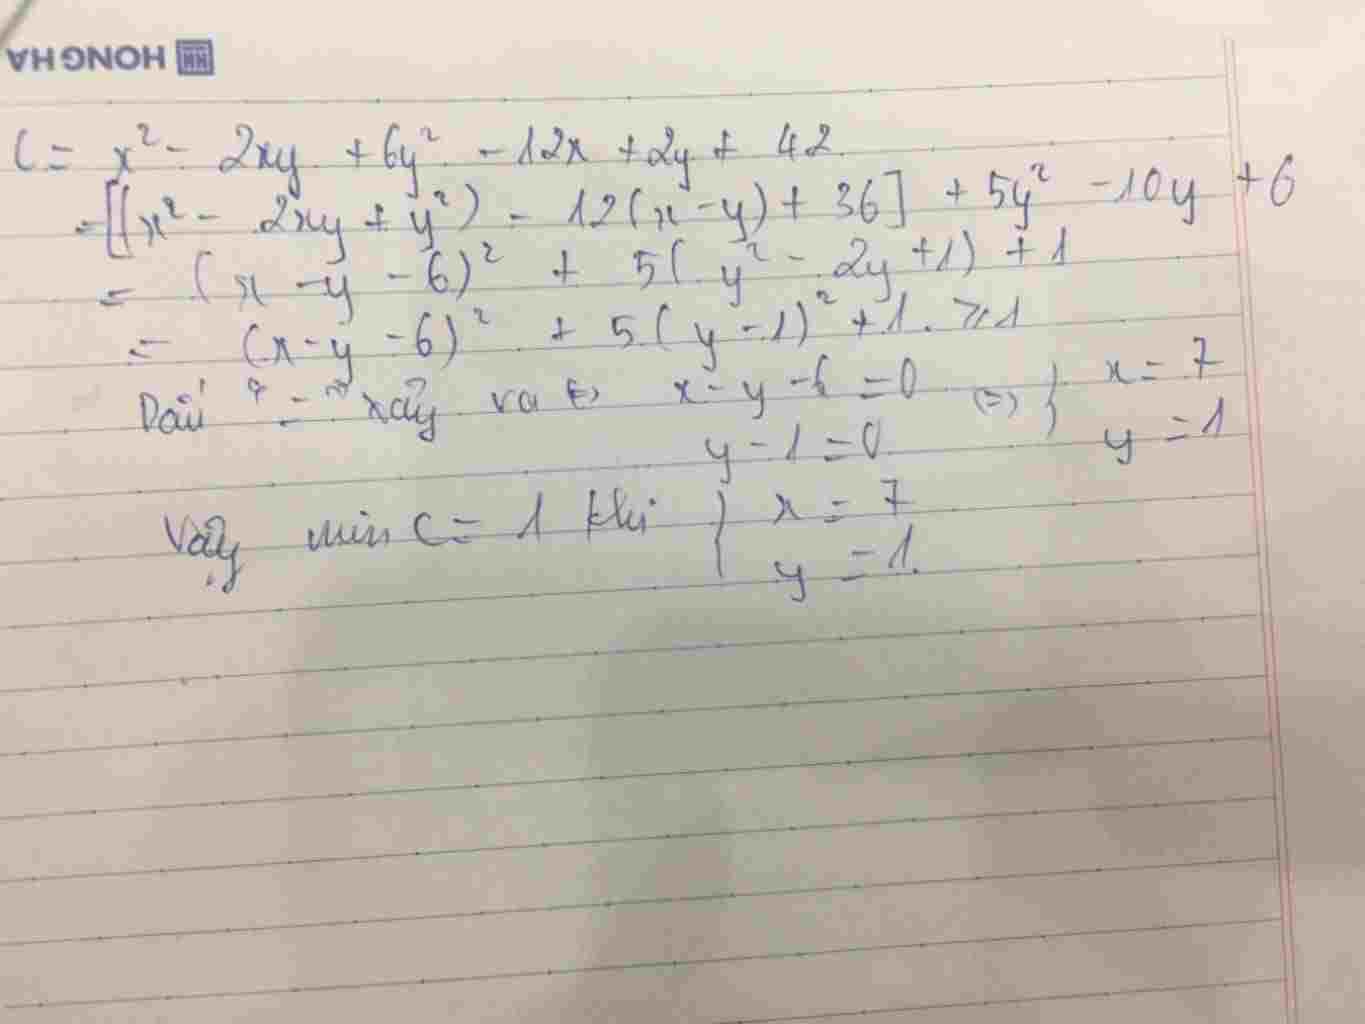 HONG HA
C = x² - 2xy + 6y² - 12x + 2y + 42
= [(x² - 2xy + y²) - 12(x - y) + 36] + 5y² - 10y + 6
= (x - y - 6)² + 5(y² - 2y + 1) + 1
= (x - y - 6)² + 5(y - 1)² + 1. ≥ 1
Dấu " = " xảy ra ⇔ x - y - 6 = 0 ⇔ } x = 7
y - 1 = 0 y = 1
Vậy min C = 1 khi } x = 7
y = 1.